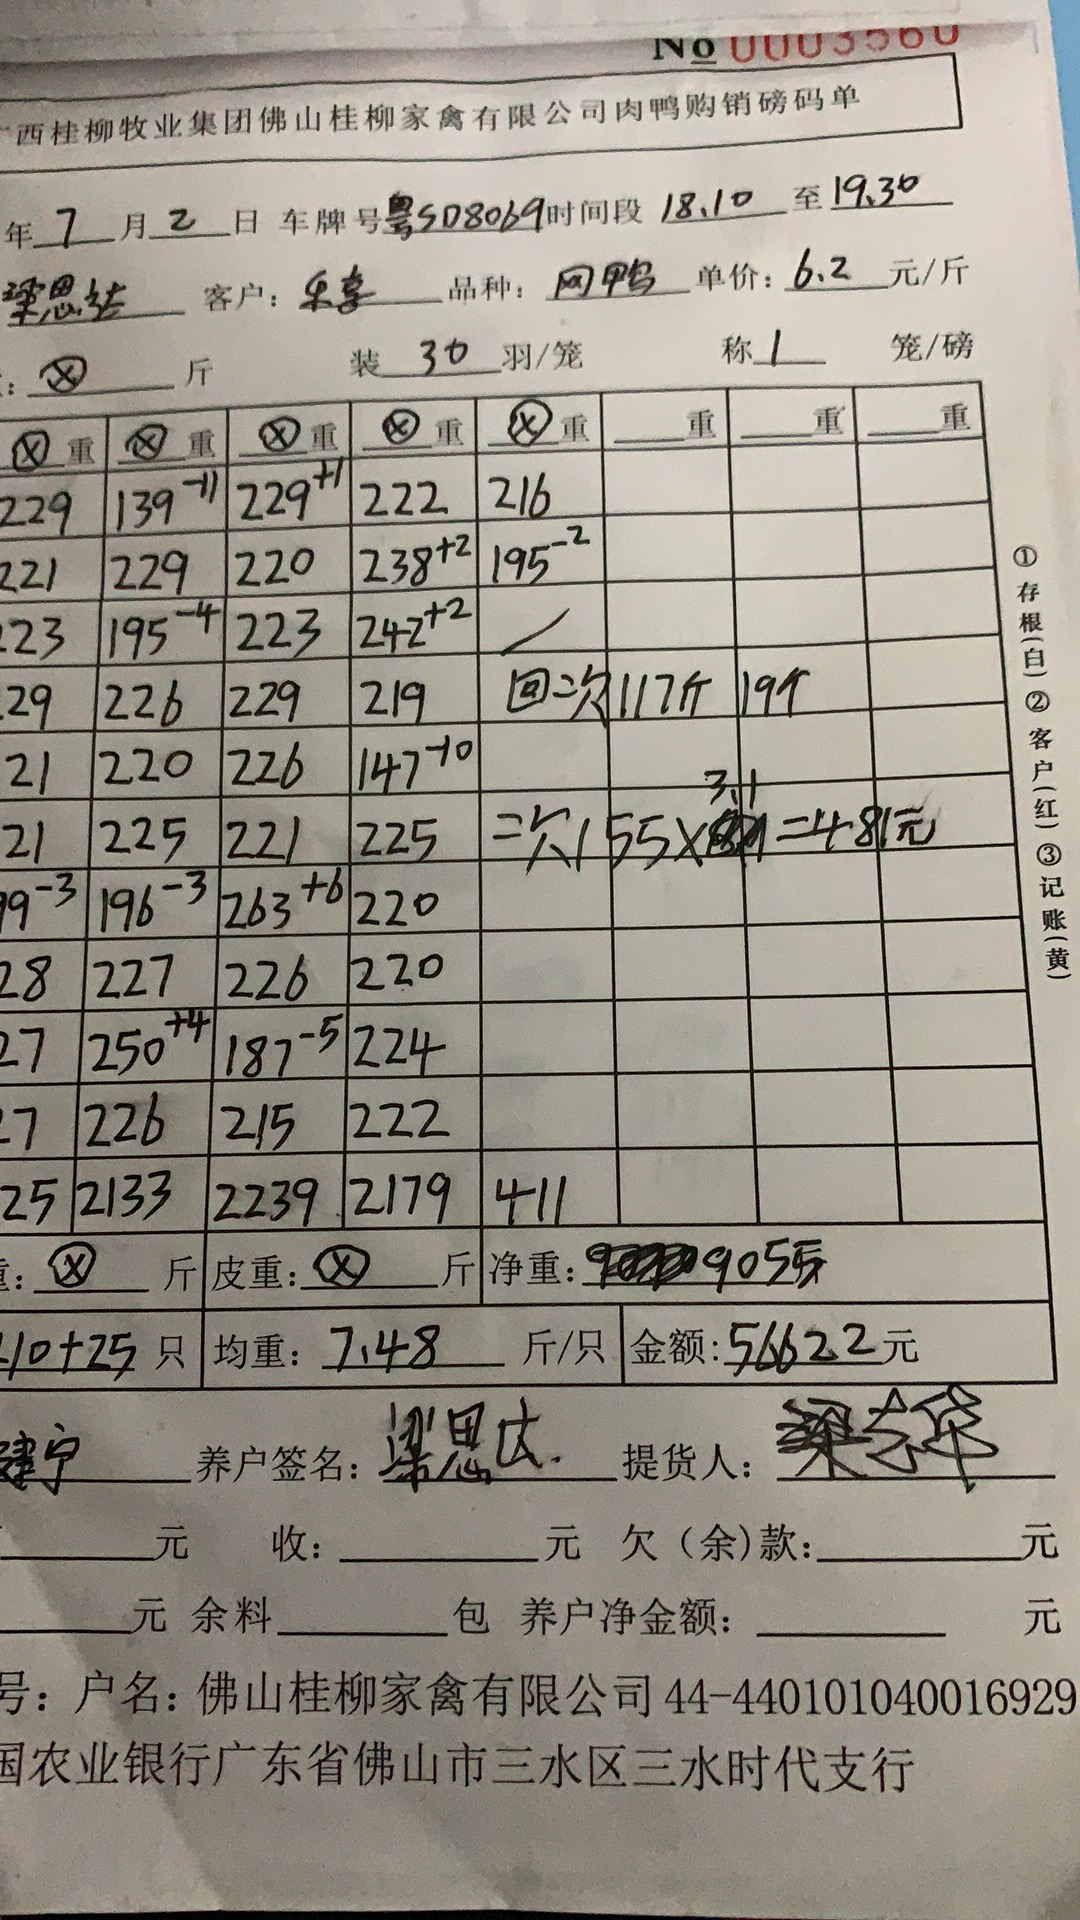 No 0003560
广西桂柳牧业集团佛山桂柳家禽有限公司肉鸭购销磅码单
年 7 月 2 日 车牌号 粤SD8069 时间段 18.10 至 19.30
梁思达 客户: 乐享 品种: 网鸭 单价: 6.2 元/斤
: ⓧ 斤 装 30 羽/笼 称 1 笼/磅
ⓧ 重 ⓧ 重 ⓧ 重 ⓧ 重 ⓧ 重 重 重 重
229 139-11 229+1 222 216
221 229 220 238+2 195-2
223 195-4 223 242+2 /
29 226 229 219 回二次 117斤 19个
21 220 226 147-10
21 225 221 225 二次 155×3.1=481元
99-3 196-3 263+6 220
28 227 226 220
27 250+4 187-5 224
27 226 215 222
25 2133 2239 2179 411
重: ⓧ 斤 皮重: ⓧ 斤 净重: 9055
10+25 只 均重: 7.48 斤/只 金额: 56622 元
建宁 养户签名: 梁思达 提货人:
元 收: 元 欠(余)款: 元
元 余料 包 养户净金额: 元
号: 户名: 佛山桂柳家禽有限公司 44-440101040016929
国农业银行广东省佛山市三水区三水时代支行
①存根(白)②客户(红)③记账(黄)